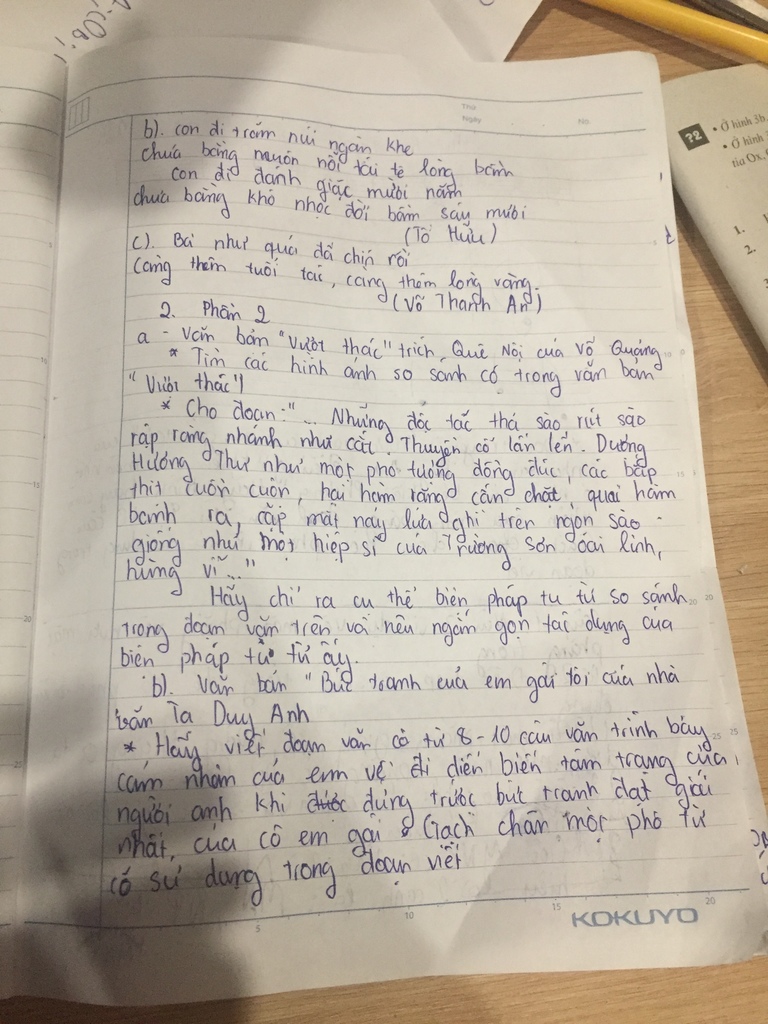 Thứ
Ngày
No.
b). con đi trăm núi ngàn khe
chưa bằng muôn nỗi tái tê lòng bầm
con đi đánh giặc mười năm
chưa bằng khó nhọc đời bầm sáu mươi
(Tố Hữu)
c). Bà như quả đã chín rồi
Càng thêm tuổi tác, càng thêm lòng vàng.
(Võ Thanh An)
2. Phần 2
a - Văn bản "Vượt thác" trích Quê Nội của Võ Quảng
* Tìm các hình ảnh so sánh có trong văn bản
"Vượt thác"
* Cho đoạn: "... Những động tác thả sào rút sào
rập ràng nhánh như cắt. Thuyền cố lấn lên. Dượng
Hương Thư như một pho tượng đồng đúc, các bắp
thịt cuồn cuộn, hai hàm răng cắn chặt, quai hàm
bạnh ra, cặp mắt nảy lửa ghì trên ngọn sào
giống như một hiệp sĩ của Trường Sơn oai linh,
hùng vĩ..."
Hãy chỉ ra cụ thể biện pháp tu từ so sánh
trong đoạn văn trên và nêu ngắn gọn tác dụng của
biện pháp từ từ ấy.
b). Văn bản "Bức tranh của em gái tôi của nhà
văn Tạ Duy Anh
* Hãy viết đoạn văn có từ 8-10 câu văn trình bày
cảm nhận của em về đi diễn biến tâm trạng của
người anh khi được đứng trước bức tranh đạt giải
nhất, của cô em gái Gạch chân một phó từ
có sử dụng trong đoạn viết
5 10 15 20
KOKUYO
?2
• Ở hình 3b,
• Ở hình
tia Ox,
1.
2.